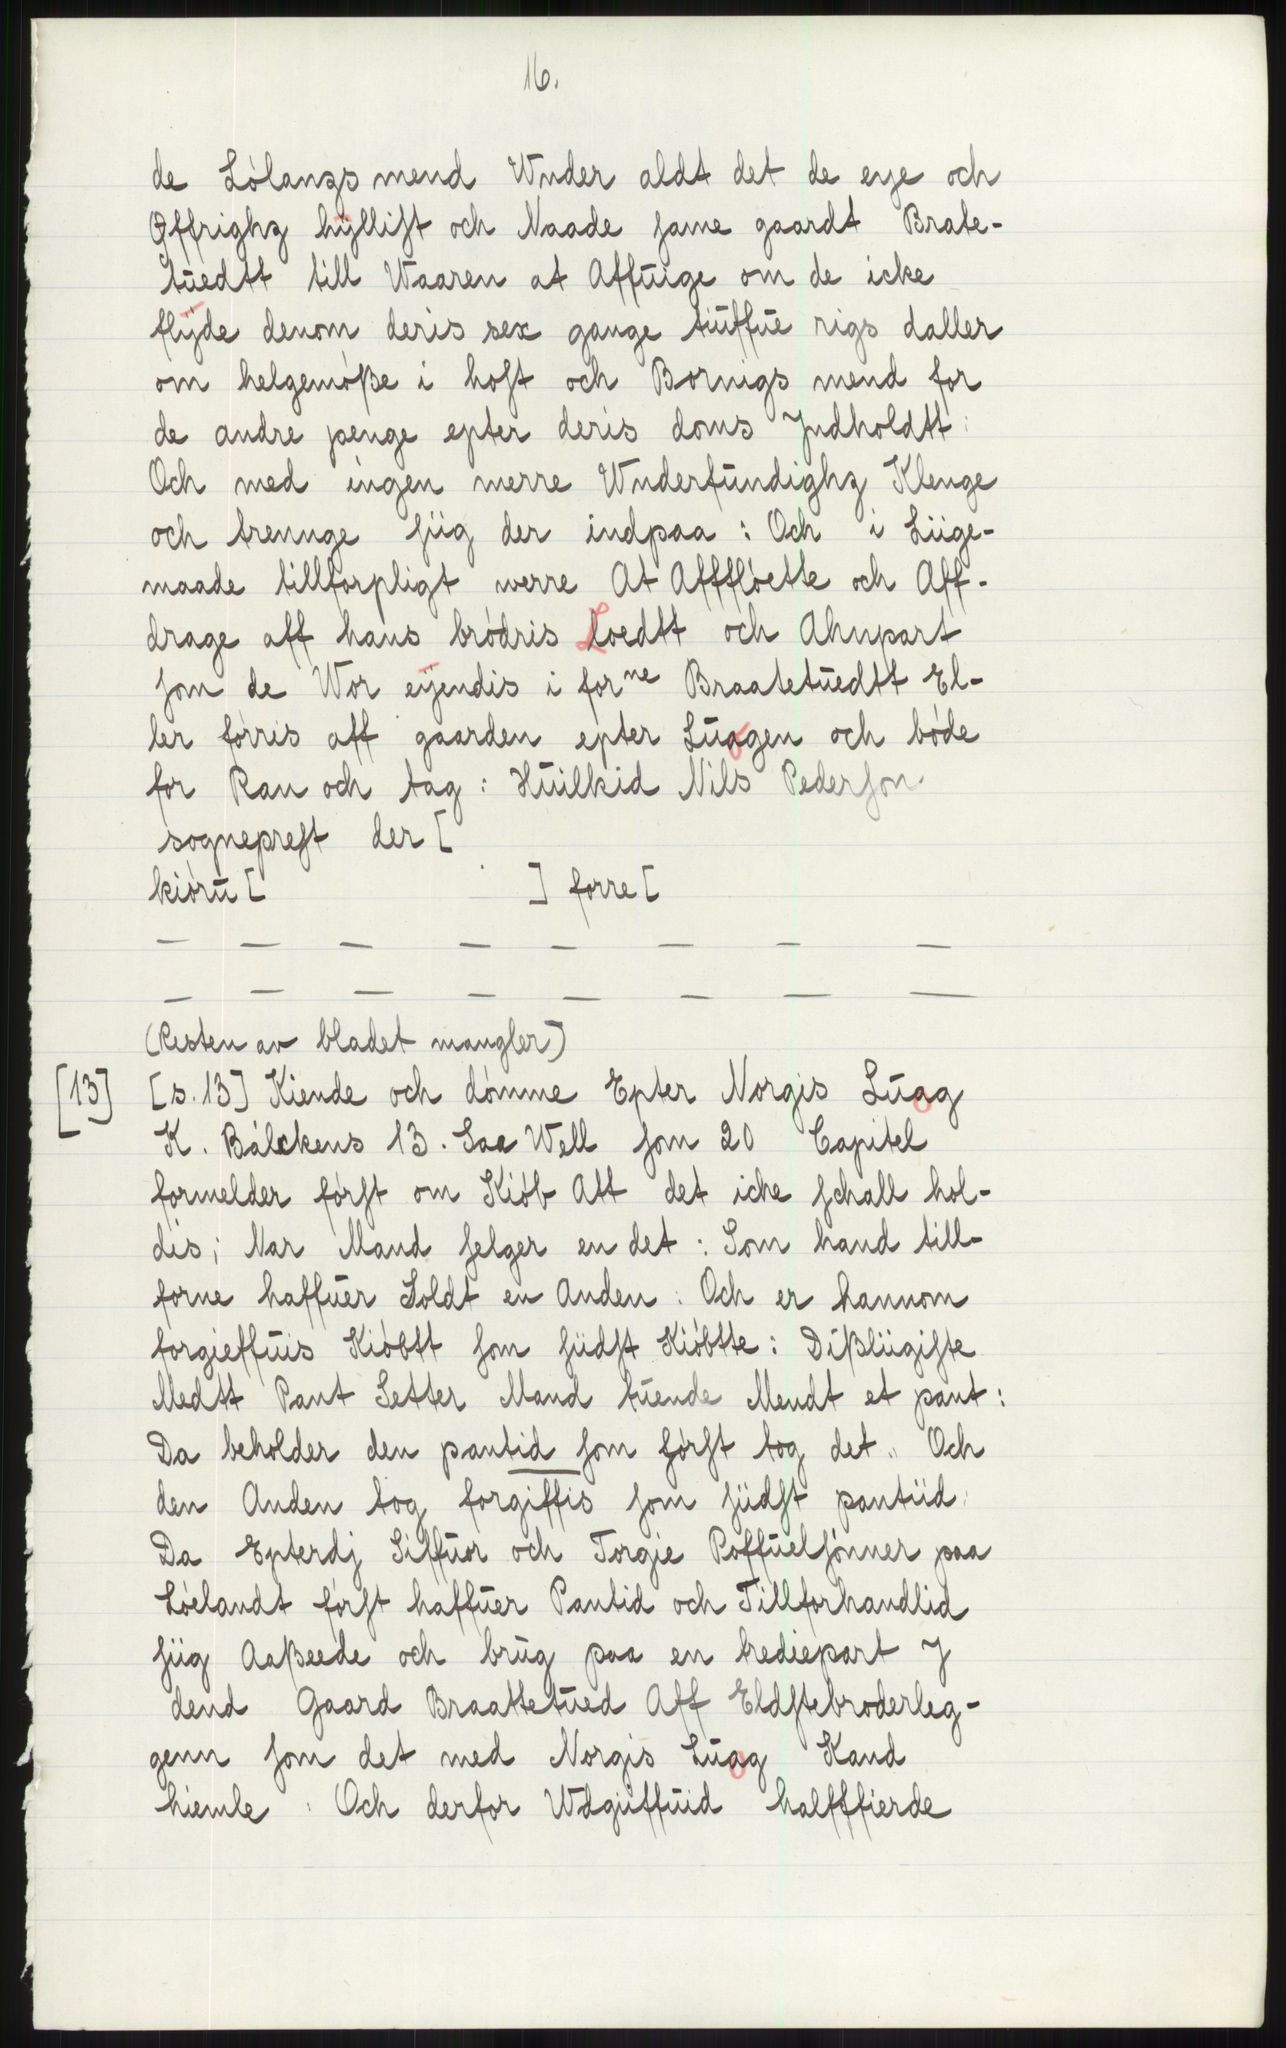 16.
de Lólangs mend Wnder aldt det de eye och
Øffrighz hÿlliſt och Naade ſame gaardt Brate-
tŭedtt till Waaren at Affŭige om de icke
flÿde denom deris sex gange tiŭffŭe rigs daller
om helgemóße i hoſt och Bornigs mend for
de andre penge epter deris doms Jndholdtt:
Och med ingen merre Wnderfŭndighz Klenge
och trennge ſiig der indpaa: Och i Liige-
maade tillforpligt werre At Afffló́ette och Aff-
drage aff hans bródris Loedtt och Ahnpart
ſom de Wor eÿendis i forⁿᵉ Braatetŭedtt El-
ler fórris aff gaarden epter Lŭagen och bóde
for Ran och tag: Hŭilkid Nils Pederſon
sognepreſt der [
kiórŭ [ ] forre [
— — — — — — — —
— — — — — — — —
(Resten av bladet mangler)
[13] [s. 13] Kiende och dómme Epter Norgis Lŭag
K. Bálckens 13. Saa Well ſom 20 Capitel
formelder fórſt om Kiób Att det icke ſchall hol-
dis; Nar Mand ſelger en det: Som hand till-
forne haffŭer Soldt en Anden: Och er hannom
forgieffŭis Kióbtt ſom ſiidſt Kióbtte: Dißliigiſte
Medtt Pant Setter Mand tŭende Mendt et pant:
Da beholder den pantid ſom fórſt tog det. Och
den Anden tog forgiffis ſom ſiidſt pantiid:
Da Epterdj Siffŭor och Torgie Poffŭelſónner paa
Lóelandt fórſt haffŭer Pantid och Tillforhandlid
ſiig Aaßeede och brŭg paa en trediepart J
dend Gaard Braattetŭed Aff Eldſtebroderleg-
genn ſom det med Norgis Lŭag Kand
hiemle: Och derfor Wdgiffŭid halfffierde